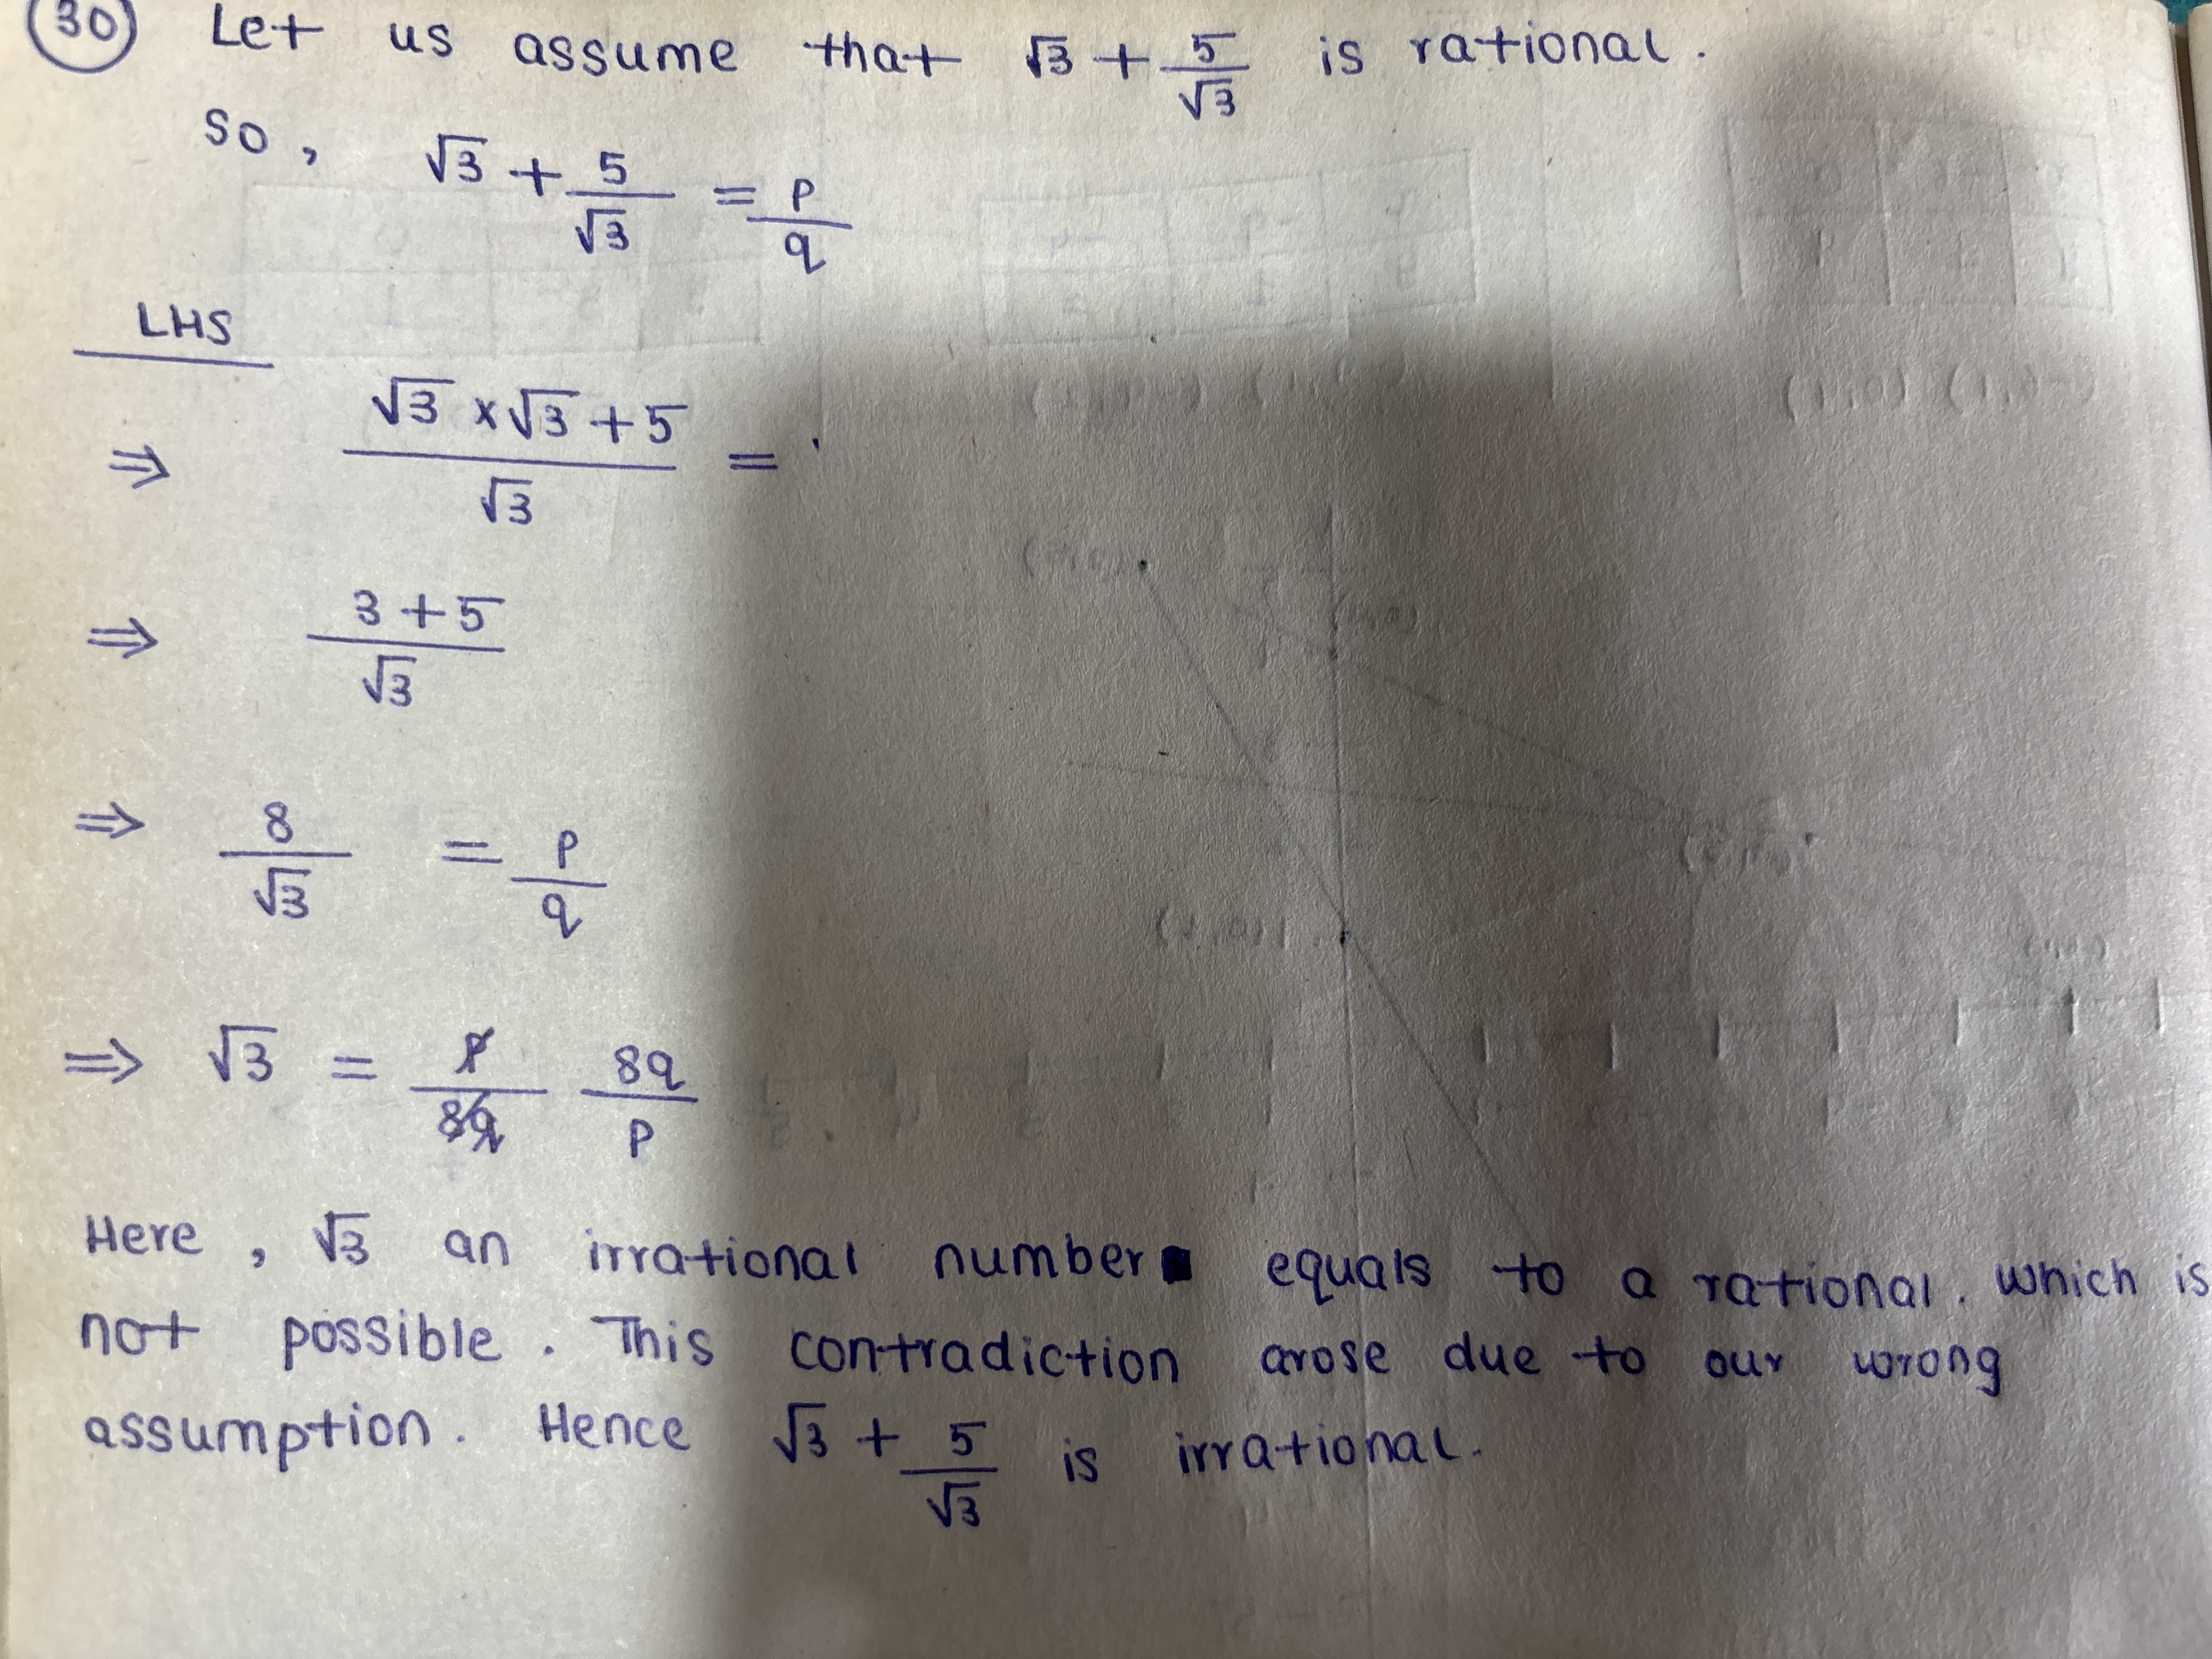 30 Let us assume that √3 + 5/√3 is rational.
so, √3 + 5/√3 = p/q
LHS
⇒ (√3 × √3 + 5)/√3 =
⇒ (3 + 5)/√3
⇒ 8/√3 = p/q
⇒ √3 = 8q/p
Here, √3 an irrational number equals to a rational. which is
not possible. This contradiction arose due to our wrong
assumption. Hence √3 + 5/√3 is irrational.